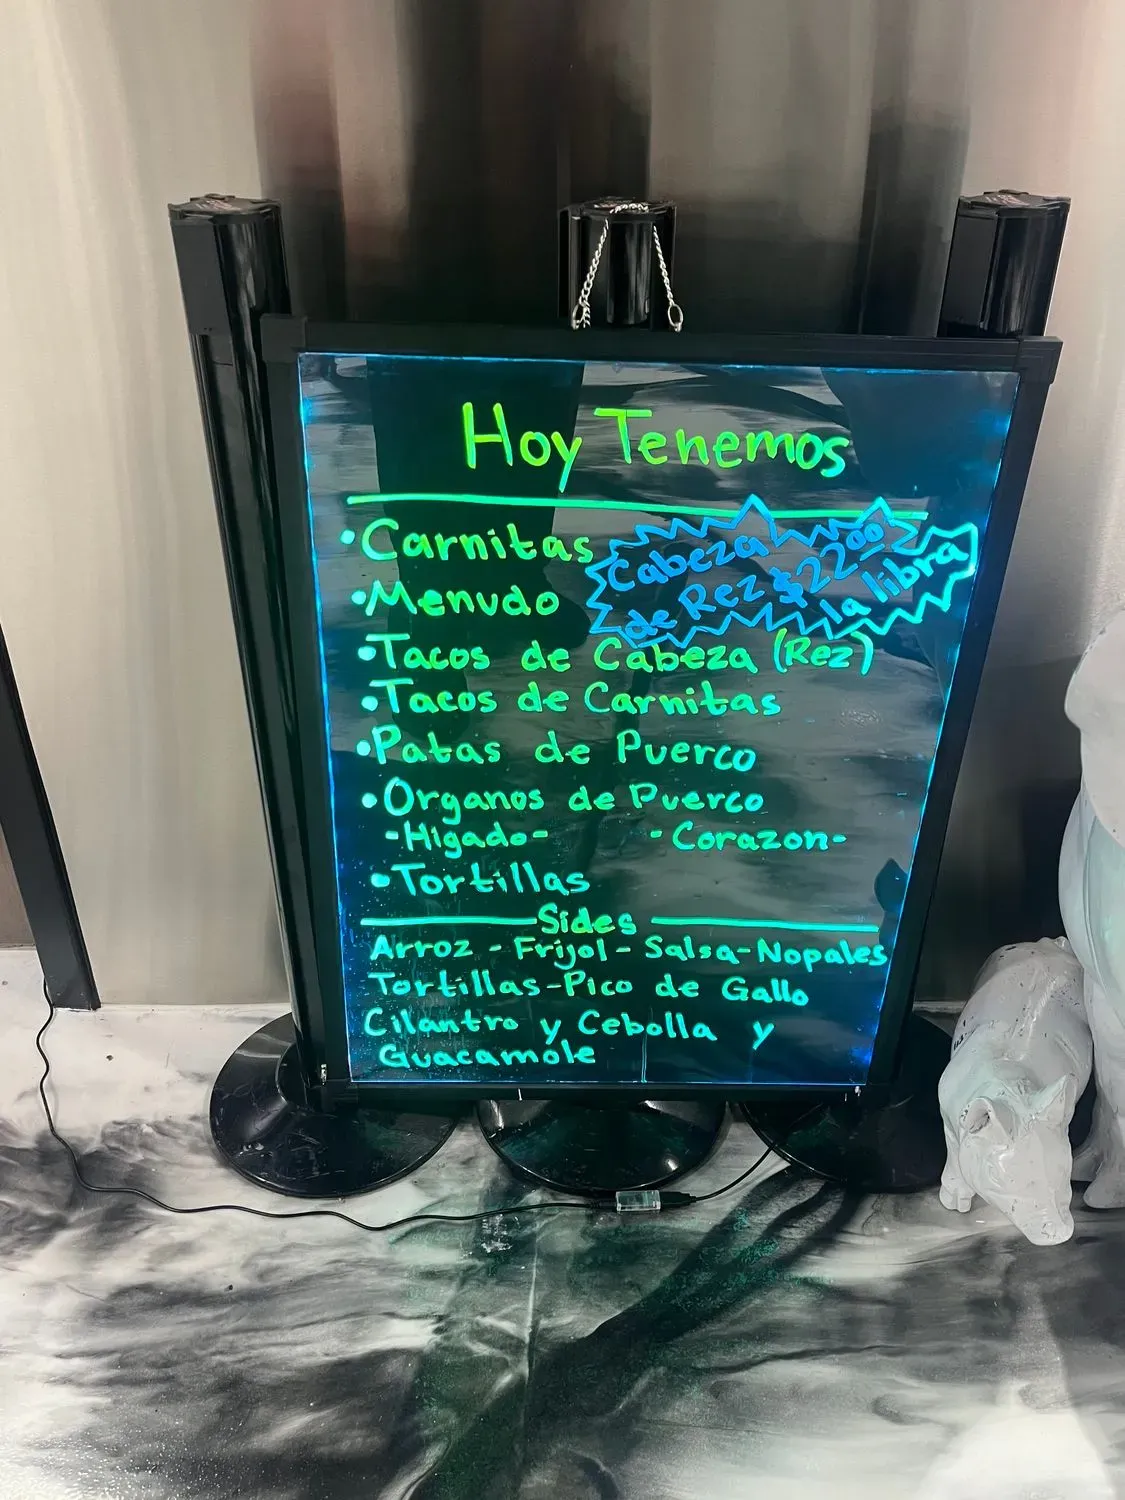 Hoy Tenemos
• Carnitas
Cabeza
de Rez $22.00
la libra
• Menudo
• Tacos de Cabeza (Rez)
• Tacos de Carnitas
• Patas de Puerco
• Organos de Puerco
-Higado- -Corazon-
• Tortillas
Sides
Arroz - Frijol - Salsa - Nopales
Tortillas - Pico de Gallo
Cilantro y Cebolla y
Guacamole